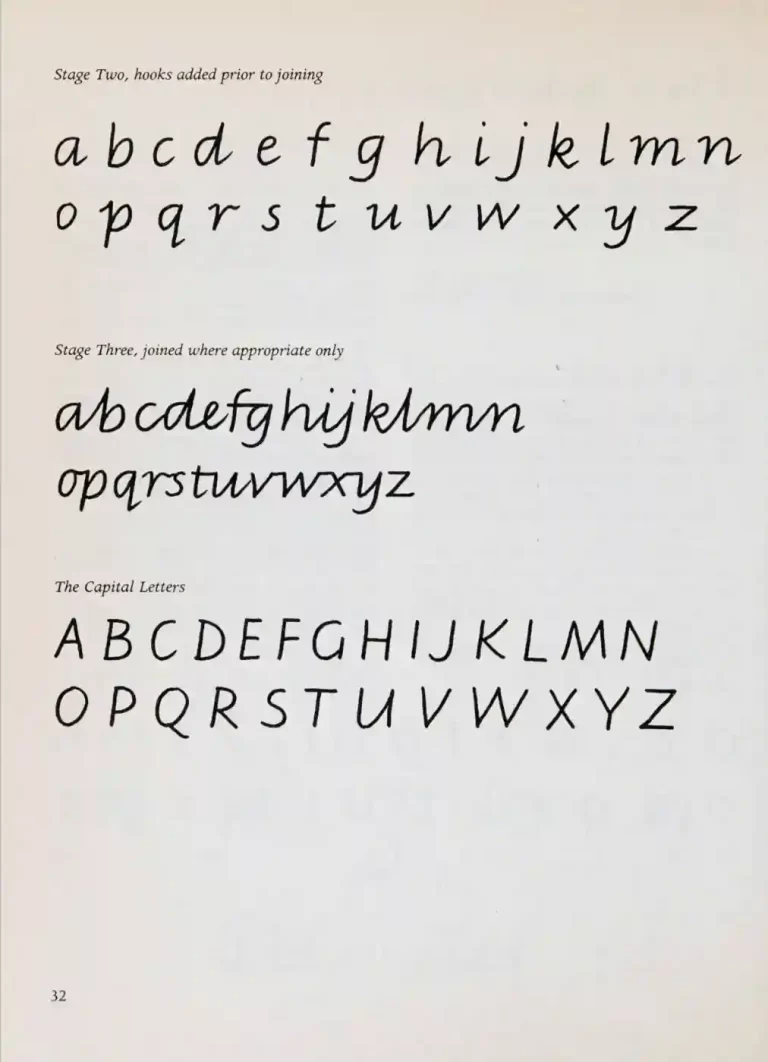 Stage Two, hooks added prior to joining
a b c d e f g h i j k l m n
o p q r s t u v w x y z
Stage Three, joined where appropriate only
abcdefghijklmn
opqrstuvwxyz
The Capital Letters
A B C D E F G H I J K L M N
O P Q R S T U V W X Y Z
32